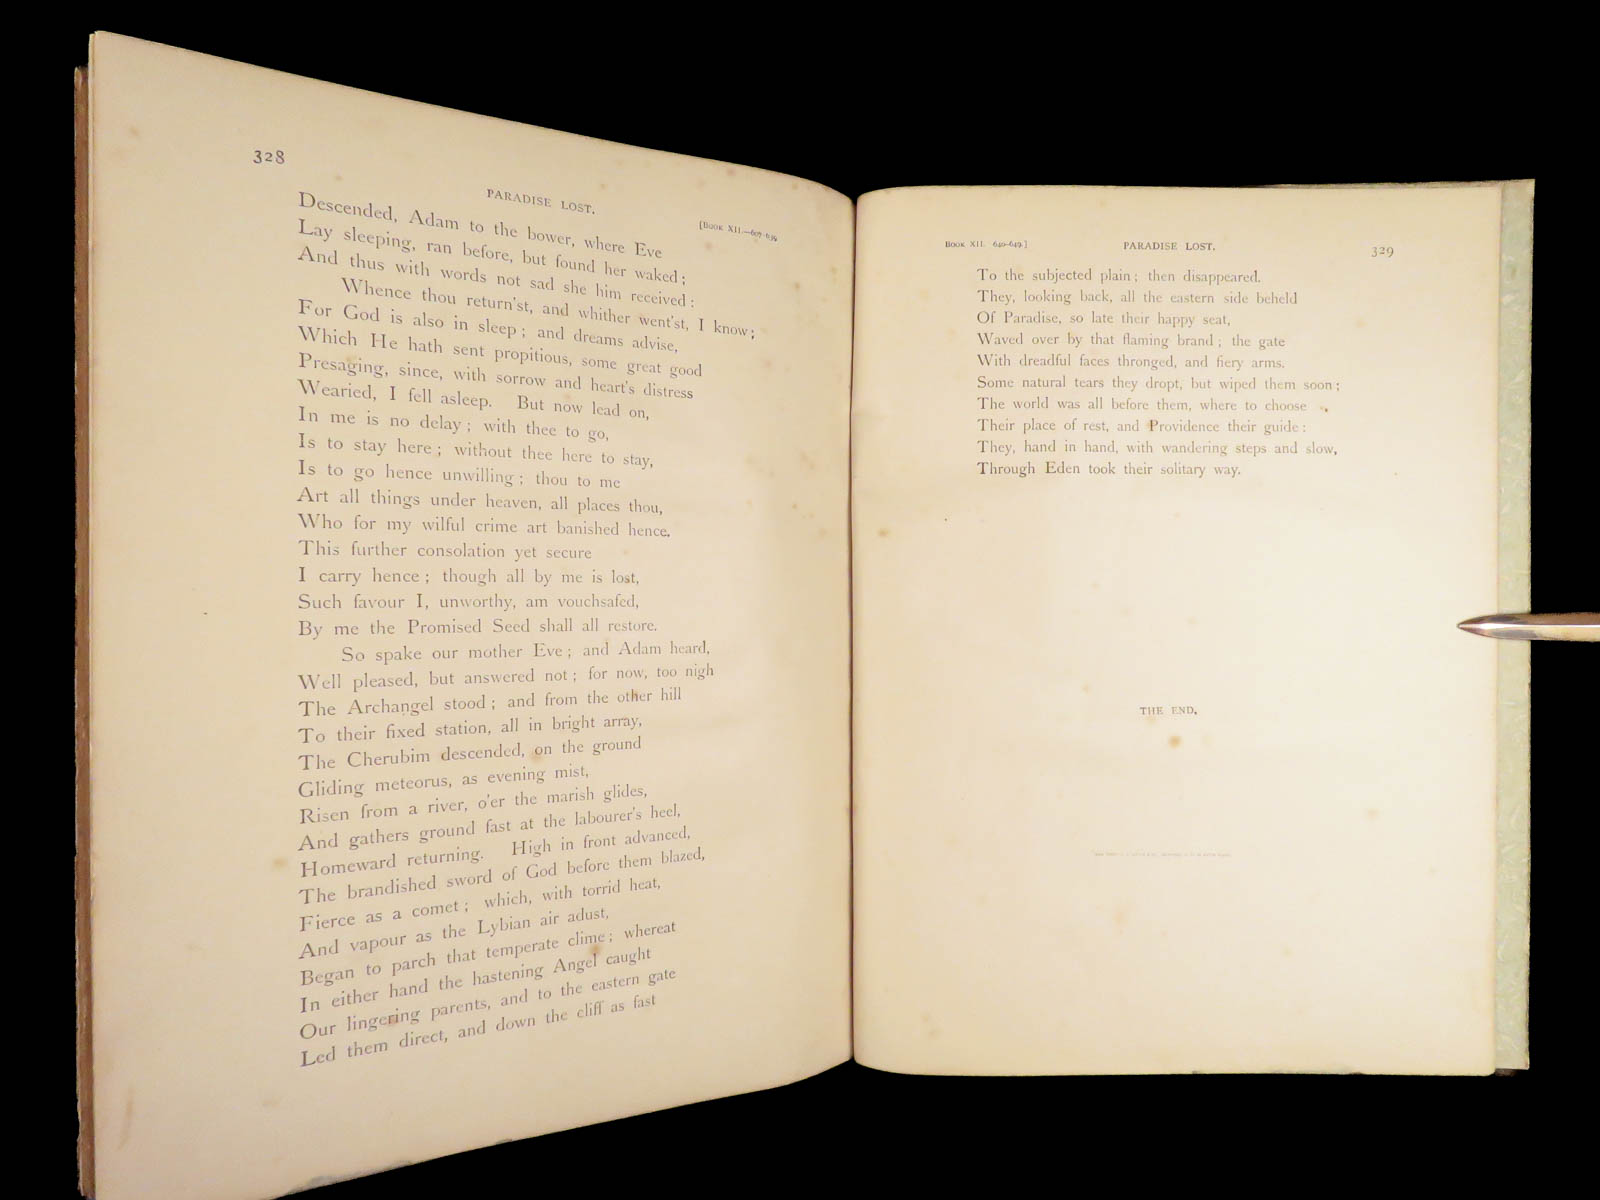 328
PARADISE LOST.
[BOOK XII.—607-639
Descended, Adam to the bower, where Eve
Lay sleeping, ran before, but found her waked;
And thus with words not sad she him received:
Whence thou return'st, and whither went'st, I know;
For God is also in sleep; and dreams advise,
Which He hath sent propitious, some great good
Presaging, since, with sorrow and heart's distress
Wearied, I fell asleep. But now lead on,
In me is no delay; with thee to go,
Is to stay here; without thee here to stay,
Is to go hence unwilling; thou to me
Art all things under heaven, all places thou,
Who for my wilful crime art banished hence.
This further consolation yet secure
I carry hence; though all by me is lost,
Such favour I, unworthy, am vouchsafed,
By me the Promised Seed shall all restore.
So spake our mother Eve; and Adam heard,
Well pleased, but answered not; for now, too nigh
The Archangel stood; and from the other hill
To their fixed station, all in bright array,
The Cherubim descended, on the ground
Gliding meteorus, as evening mist,
Risen from a river, o'er the marish glides,
And gathers ground fast at the labourer's heel,
Homeward returning. High in front advanced,
The brandished sword of God before them blazed,
Fierce as a comet; which, with torrid heat,
And vapour as the Lybian air adust,
Began to parch that temperate clime; whereat
In either hand the hastening Angel caught
Our lingering parents, and to the eastern gate
Led them direct, and down the cliff as fast
BOOK XII. 640-649.]
PARADISE LOST.
329
To the subjected plain; then disappeared.
They, looking back, all the eastern side beheld
Of Paradise, so late their happy seat,
Waved over by that flaming brand; the gate
With dreadful faces thronged, and fiery arms.
Some natural tears they dropt, but wiped them soon;
The world was all before them, where to choose
Their place of rest, and Providence their guide:
They, hand in hand, with wandering steps and slow,
Through Eden took their solitary way.
THE END.